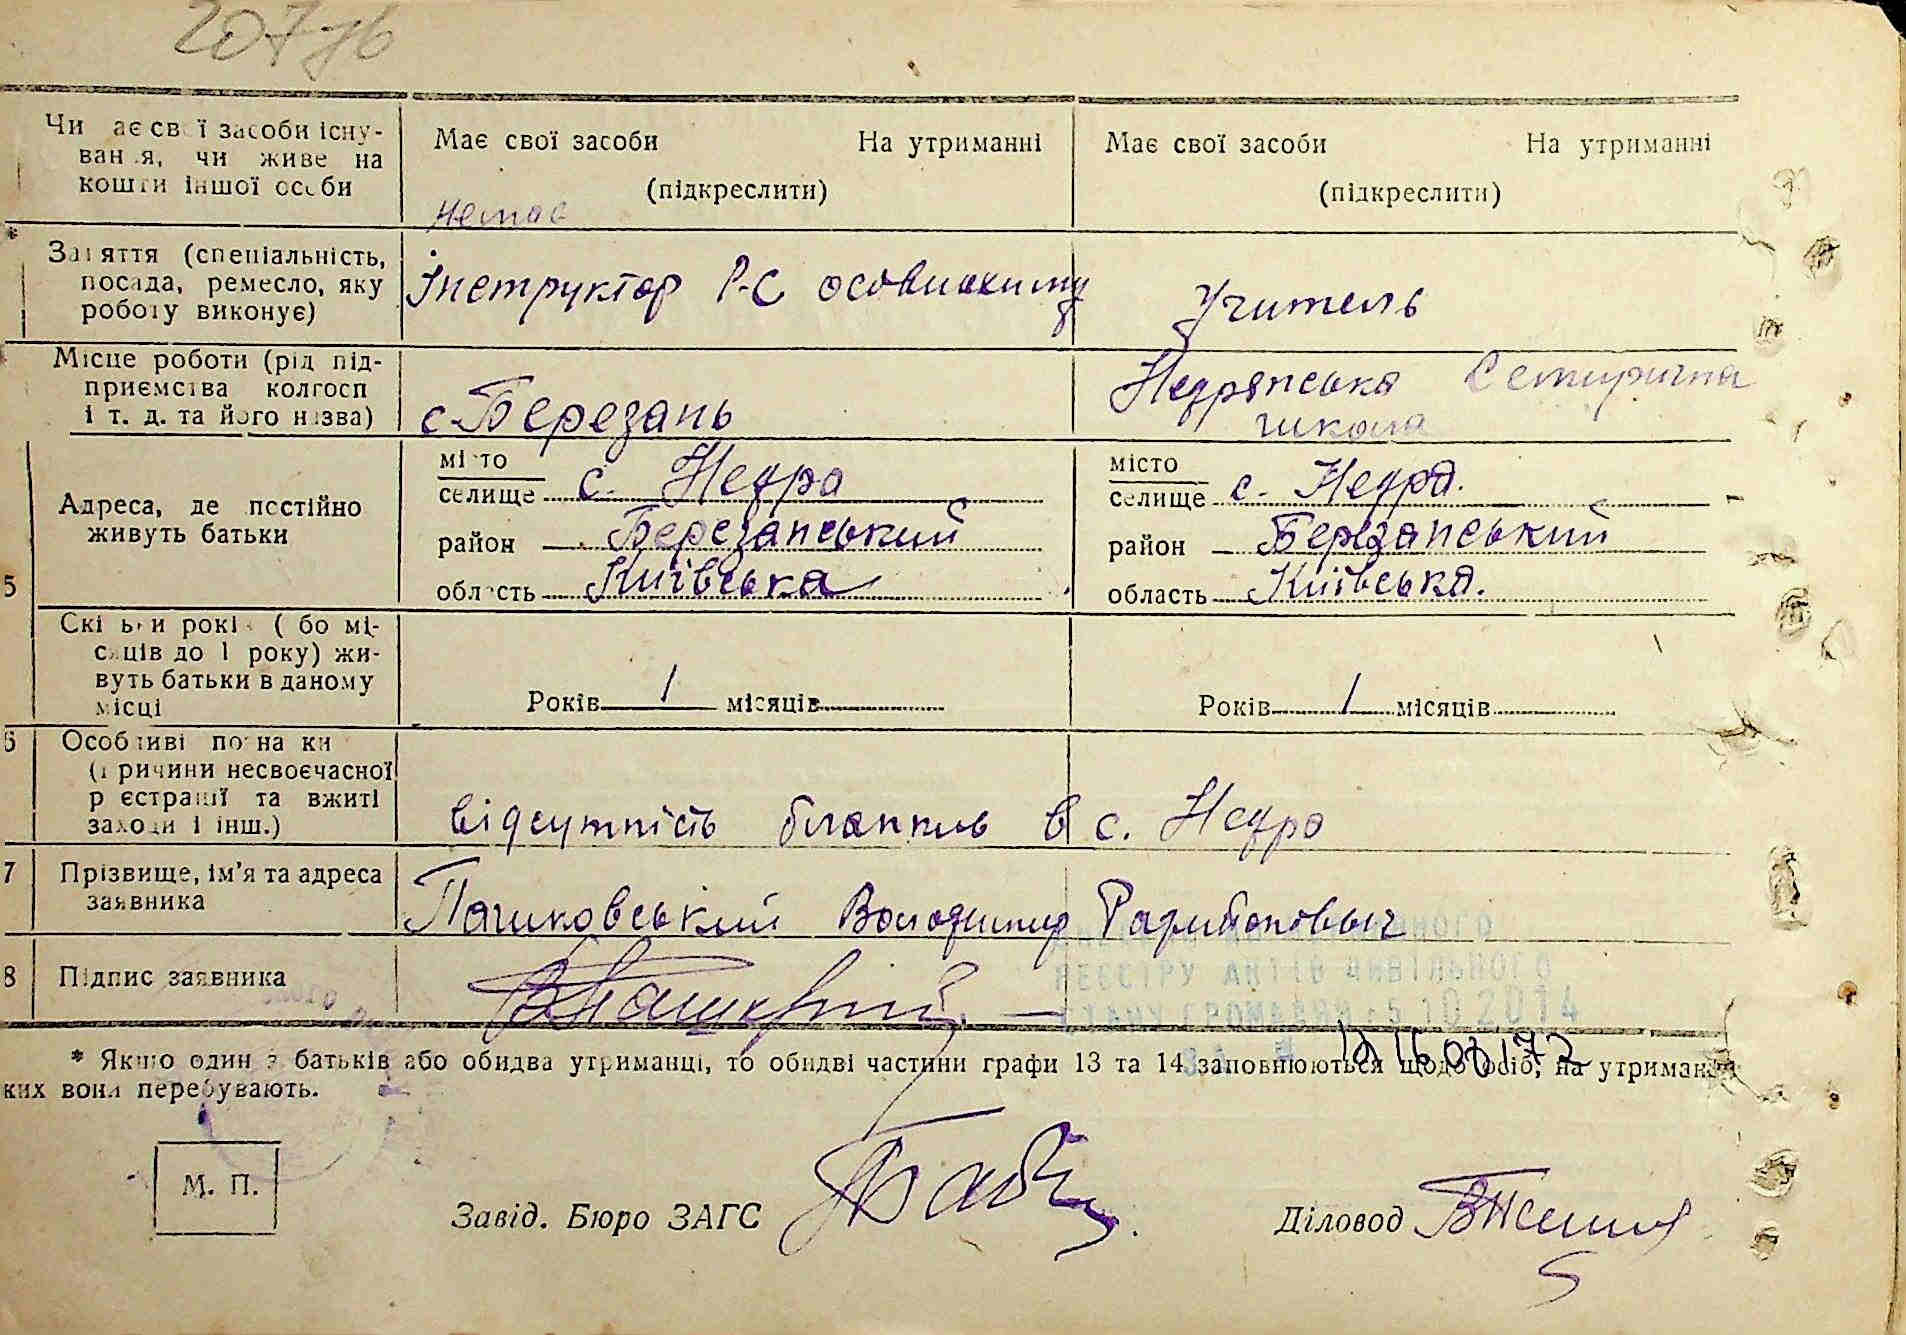 207 7б
Чи ає св ї засоби існу- Має свої засоби На утриманні Має свої засоби На утриманні
ван я, чи живе на
кошти іншої особи (підкреслити) (підкреслити)
немає
* Заняття (спеціальність,
посада, ремесло, яку Інструктор Р-С осовиахиму Учитель
роботу виконує)
Місце роботи (рід під- Недрянська
приємства колгосп
і т. д. та його назва) с. Березань школа
місто с. Недра місто с. Недра.
селище селище
Адреса, де постійно
живуть батьки район Березанський район Березанський
5 область Київська область Київська.
Скі ьки рокі ( бо мі-
сяців до 1 року) жи-
вуть батьки в даному Років 1 місяців Років 1 місяців
місці
6 Особливі позна ки
(причини несвоєчасної
р єстрації та вжиті відсутність бланків в с. Недра
заходи і інш.)
7 Прізвище, ім'я та адреса
заявника Пашковський Володимир
НОГО
РЕЄСТРУ АКТІВ ЦИВІЛЬНОГО
8 Підпис заявника
СТАНУ ГРОМАДЯН 5 10 2014
* Якщо один з батьків або обидва утриманці, то обидві частини графи 13 та 14 заповнюються щодо осіб, на утриман
ких вони перебувають.
М. П.
Завід. Бюро ЗАГС Діловод